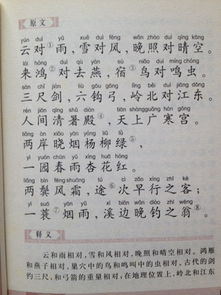 原文
yún duì yǔ xuě duì fēng wǎn zhào duì qíng kōng
云对①雨，雪对风，晚照对晴空。
lái hóng duì qù yàn sù niǎo duì míng chóng
来鸿②对去燕，宿③鸟对鸣虫。
sān chǐ jiàn liù jūn gōng lǐng běi duì jiāng dōng
三尺剑，六钧弓，岭北对江东。
rén jiān qīng shǔ diàn tiān shàng guǎng hán gōng
人间清暑殿④，天上广寒宫。
liǎng àn xiǎo yān yáng liǔ lǜ
两岸晓烟杨柳绿，
yì yuán chūn yǔ xìng huā hóng
一园春雨杏花红。
liǎng bìn fēng shuāng tú cì zǎo xíng zhī kè
两鬓风霜，途⑤次早行之客；
yì suō yān yǔ xī biān wǎn diào zhī wēng
一蓑⑥烟雨，溪边晚钓之翁⑦。
释义
云和雨相对，雪和风相对，晚照和晴空相对。鸿雁
和燕子相对，巢穴中的鸟和鸣叫中的虫相对。古代的剑
约三尺，和弓箭的重量相对，在地理位置上，岭北和江东